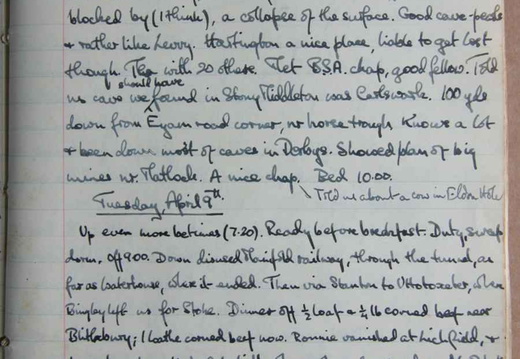 blocked by (I think), a collapse of the surface. Good cave pearls
& rather like Lewry. Hartington a nice place, liable to get lost
though. Tea with 20 others. Met B.S.A. chap, good fellow. Told
us cave we should have found in Stony Middleton was Carlswark. 100 yds
down from Eyam road corner, nr horse trough. Knows a lot
& been down most of caves in Derbys. Showed plan of big
mines nr. Matlock. A nice chap. Bed 10.00.
Told us about a cow in Eldon Hole
Tuesday, April 9th.
Up even more betimes (7.20). Ready before breakfast. Duty, sweep
dorm, off 9.00. Down disused Manifold railway, through the tunnel, as
far as Waterhouses, where it ended. Then via Stanton to Uttoxeter, where
Bingley left us for Stoke. Dinner off ½ loaf & ½ lb corned beef near
Blithbury; I loathe corned beef now. Ronnie vanished at Lichfield, &